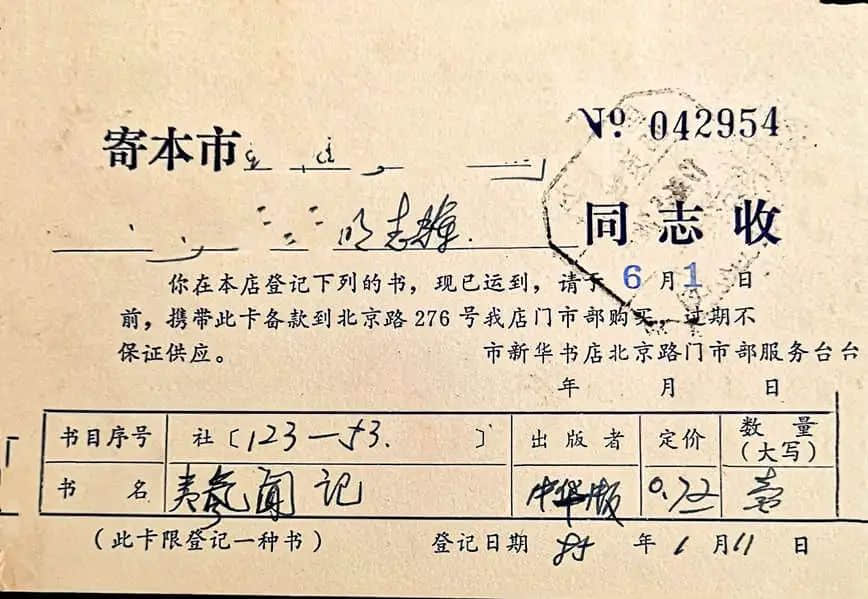 No. 042954
寄本市
志辉 同志收
你在本店登记下列的书，现已运到，请于 6 月 1 日
前，携带此卡备款到北京路276号我店门市部购买，过期不
保证供应。 市新华书店北京路门市部服务台台
年 月 日
书目序号 社〔123—53. 〕 出版者 定价 数量（大写）
书名 夷氛闻记 中华版 0.72 壹
（此卡限登记一种书） 登记日期 85 年 1 月 11 日